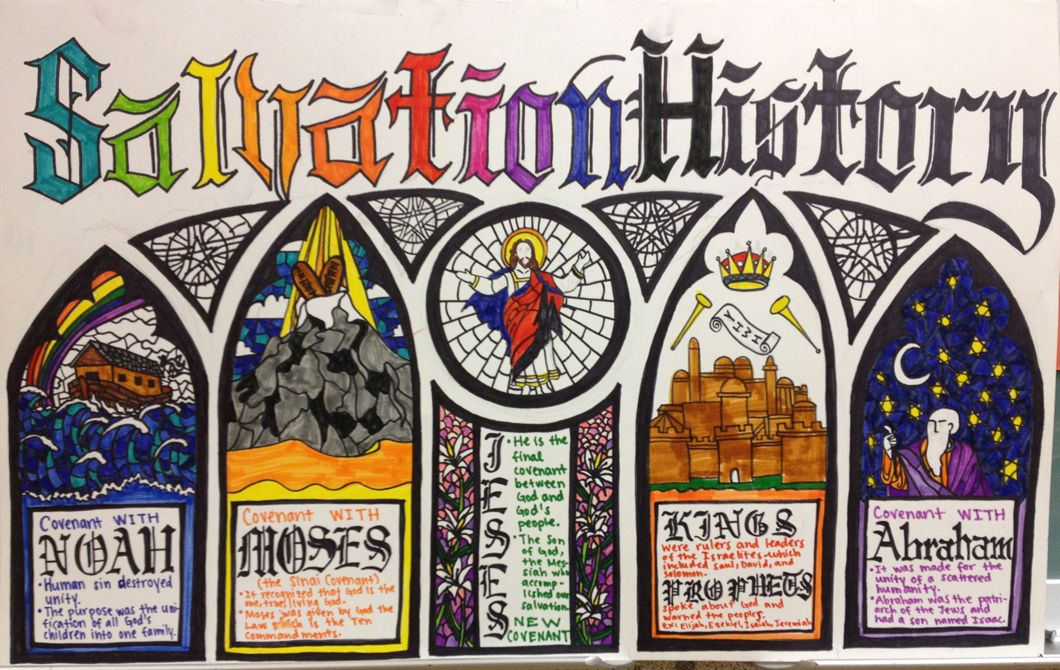 Salvation History
Covenant WITH
NOAH
• Human sin destroyed
unity.
• The purpose was the uni-
fication of all God's
children into one family.
Covenant WITH
MOSES
(the Sinai Covenant)
• It recognized that God is the
one, true, living God.
• Moses was given by God the
Law which is the Ten
Commandments.
JESUS
• He is the
final
covenant
between
God and
God's
people.
• The Son
of God,
the Mes-
siah who
accomp-
lished our
salvation.
NEW
COVENANT
KINGS
were rulers and leaders
of the Israelites-which
included Saul, David, and
Solomon.
PROPHETS
spoke about God and
warned the people.
ex: Elijah, Ezekiel, Isaiah, Jeremiah
Covenant WITH
Abraham
• It was made for the
unity of a scattered
humanity.
• Abraham was the patri-
arch of the Jews and
had a son named Isaac.